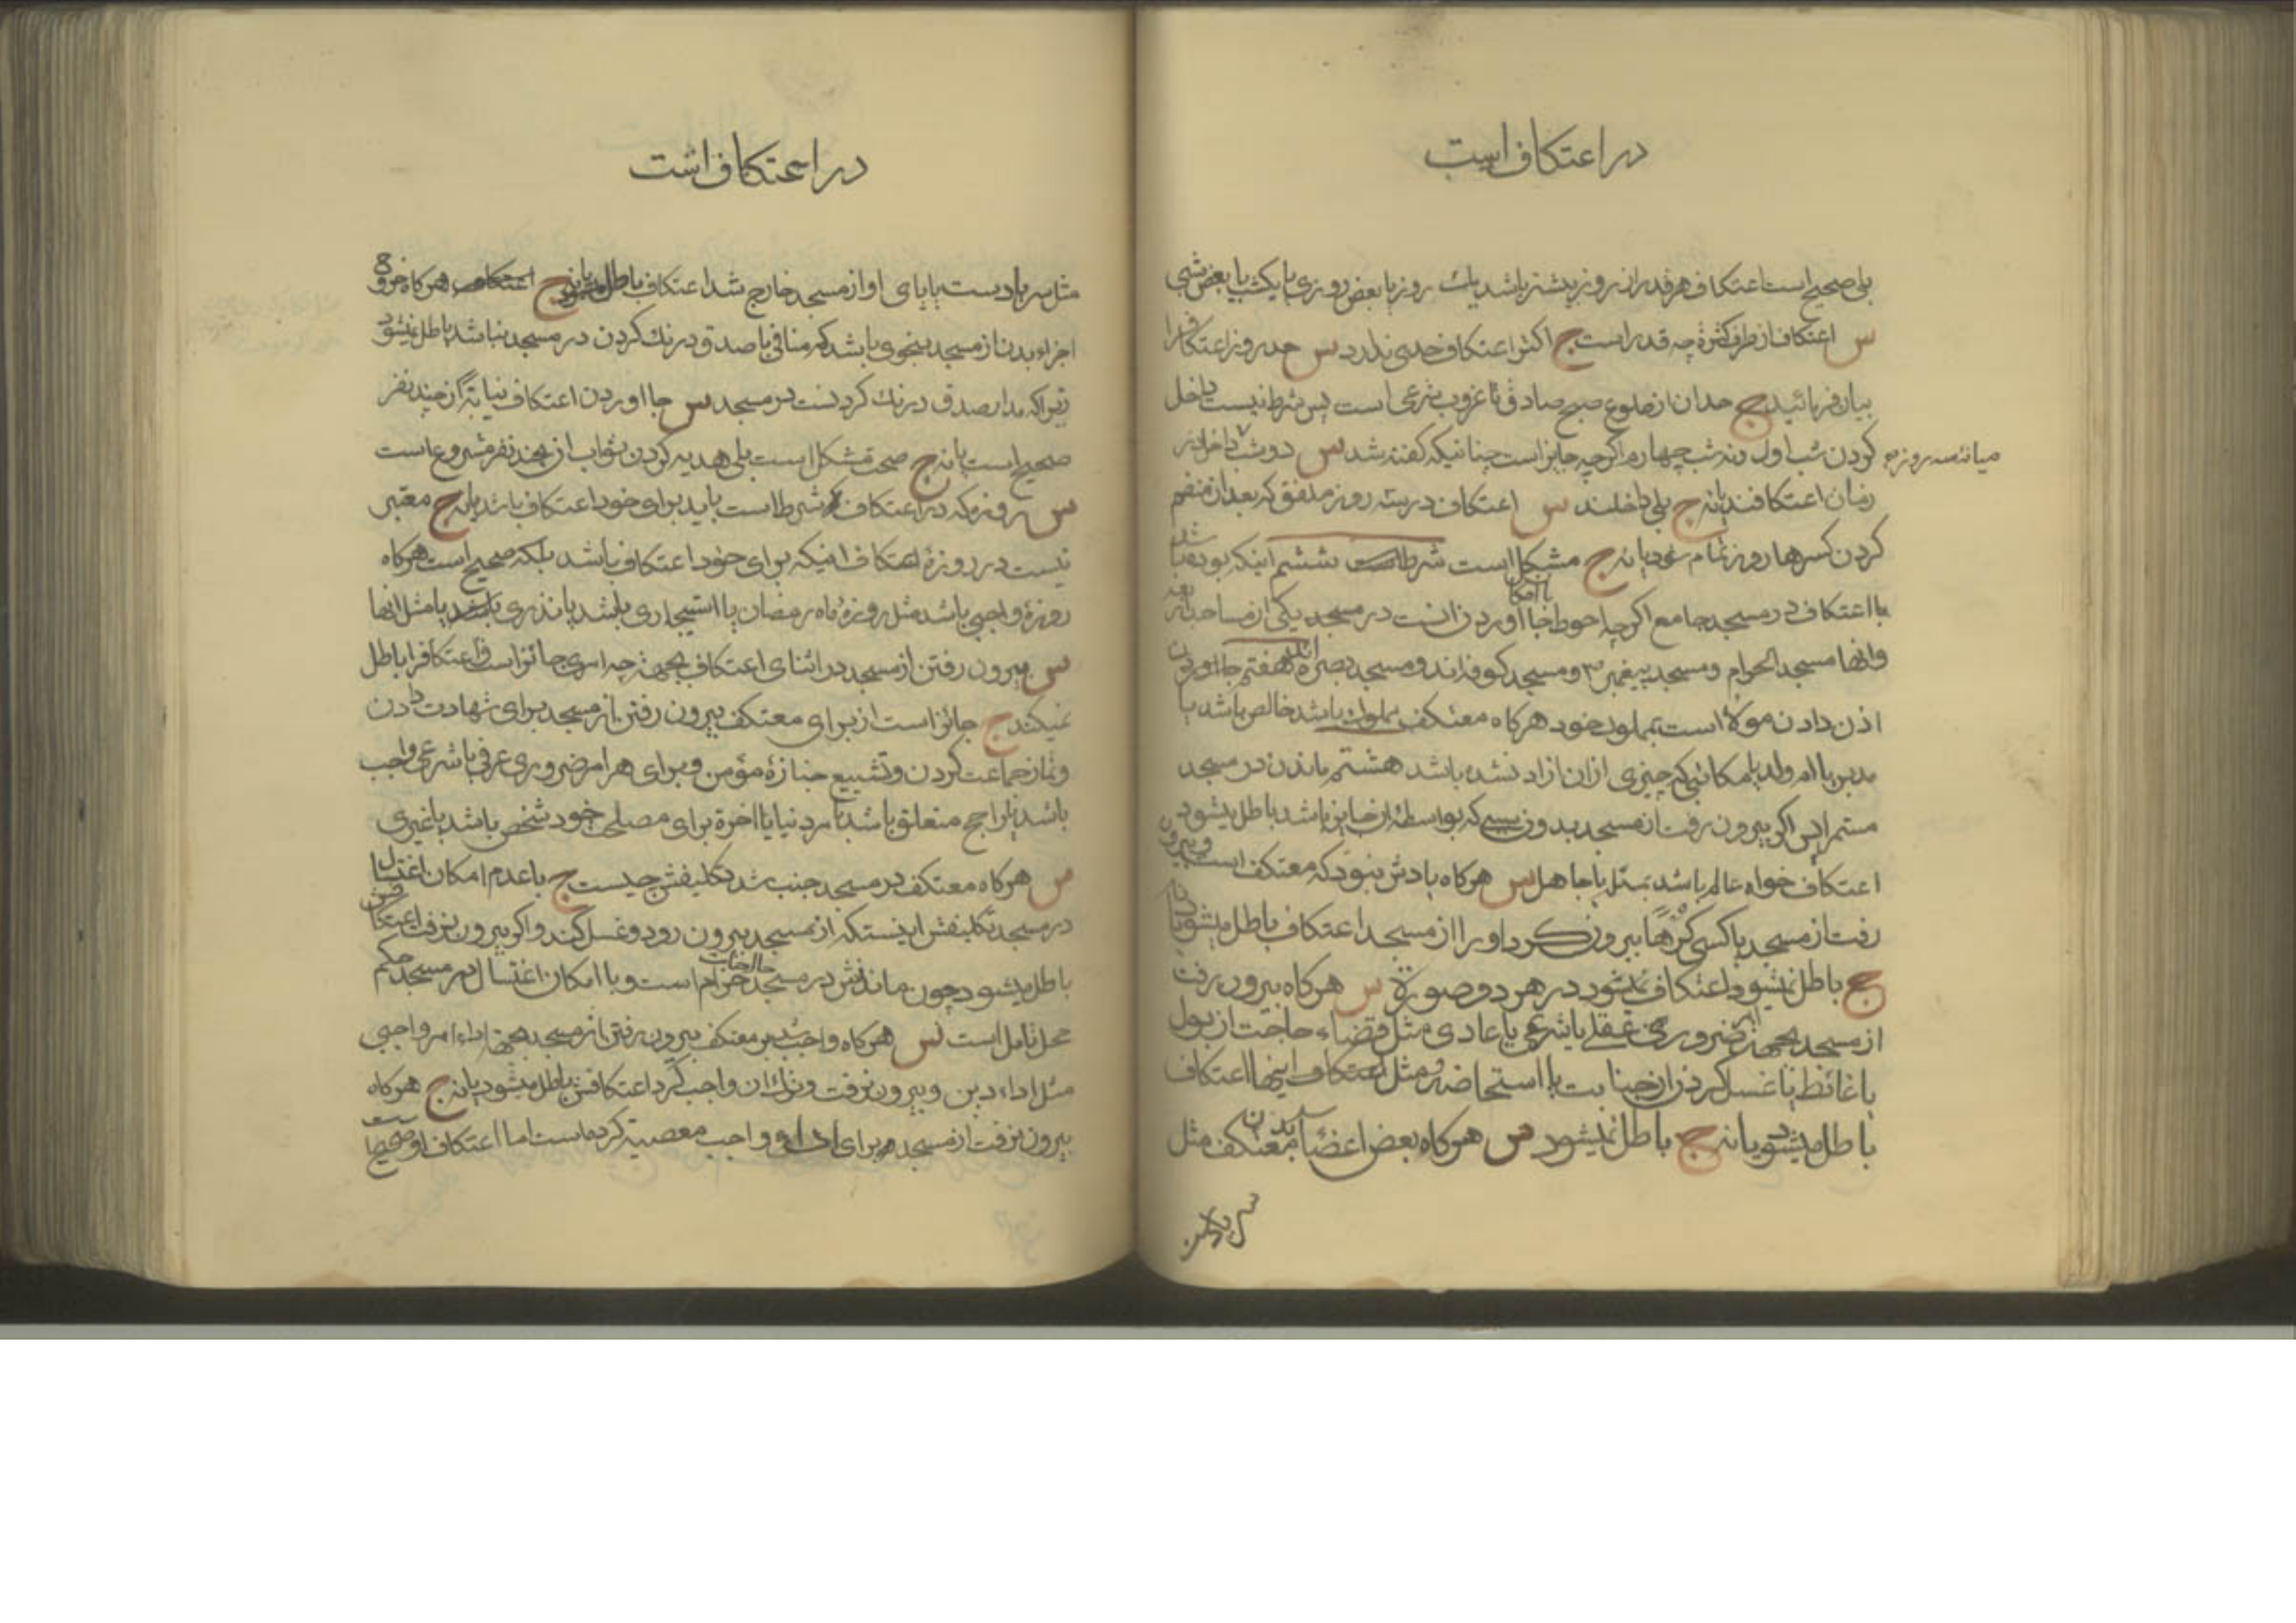 در اعتکاف است
بلی صحیح است اعتکاف هر قدر از روز بیشتر باشد یك روز یا بعض روزی یا یکشب یا بعض شبی
س اعتکاف از طرف کثرة چه قدر است ج اکثر اعتکاف حدی ندارد س حد روز اعتکافرا
بیان فرمائید ج حد ان از طلوع صبح صادق تا غروب شرعی است پس شرط نیست داخل
کردن شب اول و نه شب چهارم اگرچه جایز است چنانیکه گفته شد س دو شب داخل در
میانه سه روزه
زمان اعتکافند یا نه ج بلی داخلند س اعتکاف در سه روز ملفق که بعد از منضم
کردن کسرها روز تمام شود یا نه ج مشکل است شرط ششم اینکه بوده باشد
با اعتکاف در مسجد جامع اگرچه احوط با امکان جا اوردن انست در مسجد یکی از مساجد اربعه
وانها مسجد الحرام و مسجد پیغمبر و مسجد کوفه اند و مسجد بصره اند هفتم جا اوردن
اذن دادن مولا است بمملوك خود هرکاه معتکف مملوك باشد خالص باشد یا
مدبر یا ام ولد یا مکاتبی که چیزی از ان ازاد نشده باشد هشتم ماندن در مسجد
مستمرا پس اکر بیرون رفت از مسجد بدون سببی که بواسطه ان جایز باشد باطل میشود
اعتکاف خواه عالم باشد بمسئله یا جاهل س هرکاه یادش نبود که معتکف است و بیرون
رفت از مسجد یا کسی کرها بیرون کرد او را از مسجد اعتکاف باطل میشود یا نه
ج باطل نمیشود اعتکاف در هر دو صورة س هرکاه بیرون رفت
از مسجد بجهة ضروری عقلی یا شرعی یا عادی مثل قضاء حاجت از بول
یا غائط یا غسل کردن از جنابت یا استحاضه و مثل اینها اعتکاف
باطل میشود یا نه ج باطل نمیشود س هرکاه بعض اعضاء بدن معتکف مثل
در اعتکاف است
مثل سر یا دست یا پای او از مسجد خارج شد اعتکاف باطل میشود یا نه ج هرکاه خروج
اجزاء بدن از مسجد بنحوی باشد که منافی با صدق درنك کردن در مسجد نباشد باطل نمیشود
زیرا که مدار صدق درنك کردنست در مسجد س جا اوردن اعتکاف نیابة از چند نفر
صحیح است یا نه ج صحت مشکل است بلی هدیه کردن ثواب از چند نفر مشروع است
س روزه که در اعتکاف شرط است باید برای خود اعتکاف باشد یا نه ج معتبر
نیست در روزه اعتکاف اینکه برای خود اعتکاف باشد بلکه صحیح است هرکاه
روزه واجبی باشد مثل روزه ماه رمضان یا استیجاری باشد یا نذری یا مثل انها
س بیرون رفتن از مسجد در اثنای اعتکاف بجهة چه امری جائز است و اعتکافرا باطل
نمیکند ج جائز است از برای معتکف بیرون رفتن از مسجد برای شهادت دادن
و نماز جماعت کردن و تشییع جنازه مؤمن و برای هر امر ضروری عرفی یا شرعی واجب
باشد یا راجح متعلق باشد بامر دنیا یا اخرة برای مصلحت خود شخص باشد یا غیری
س هرکاه معتکف در مسجد جنب شد تکلیفش چیست ج با عدم امکان اغتسال
در مسجد تکلیفش اینستکه از مسجد بیرون رود و غسل کند و اکر بیرون نرفت اعتکافش
باطل میشود چون ماندنش در مسجد حال جنابت حرام است و با امکان اغتسال در مسجد حکم
محل تامل است س هرکاه واجب شد بر معتکف بیرون رفتن از مسجد بجهة اداء امر واجبی
مثل اداء دین و بیرون نرفت و ترك ان واجب کرد اعتکافش باطل میشود یا نه ج هرکاه
بیرون نرفت از مسجد برای اداء واجب معصیة کرده است اما اعتکاف او صحیح است